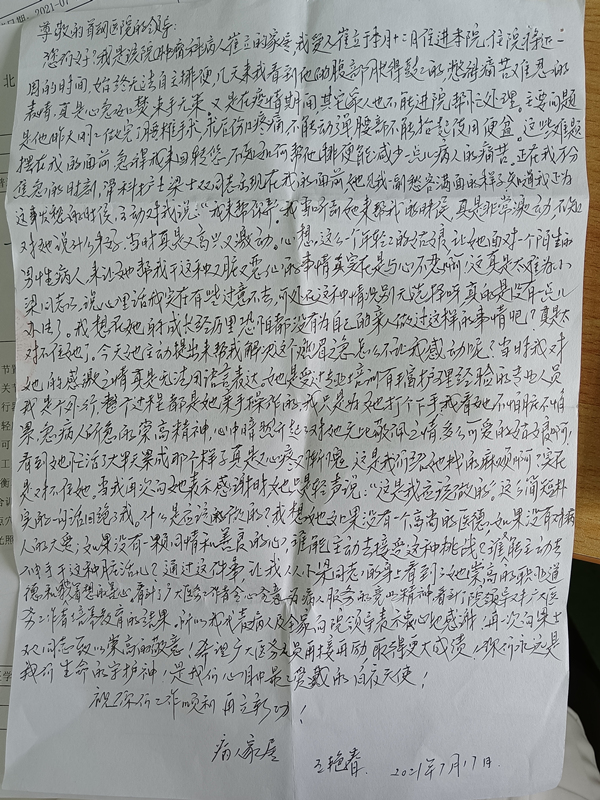 尊敬的首钢医院的领导:
您们好!我是该院肿瘤科病人崔立的家属,我爱人崔立于本月十二日住进本院,住院将近一
周的时间,始终无法自主排便,几天来我看到他的腹部胀得鼓鼓的,愁绪痛苦难忍的
表情,真是心急如焚束手无策,又是在疫情期间其它家人也不能进院帮忙处理。主要问题
是他昨天刚做完了腰椎手术,术后伤口疼痛不能动弹腰部不能抬起使用便盆。这些难题
摆在我的面前急得我来回转悠不知如何帮他排便能减少一点儿病人的痛苦。正在我万分
焦急的时刻,骨科护士梁士双同志出现在我的面前她见我一副愁容满面的样子知道我正为
这事发愁的时候,主动对我说:“我来帮你弄”我当听到她来帮我的时候,真是非常激动,不知
对她说什么才好,当时真是又高兴又激动。心想,这么一个年轻的姑娘让她面对一个陌生的
男性病人,来让她帮我干这种又脏又恶心的事情真实在是与心不忍啊!这真是太难为小
梁同志了,说心里话我实在有些过意不去。可处在这种情况别无选择呀真的是没有一点儿
办法了。我想在她的成长经历里恐怕都没有为自己的亲人做过这样的事情吧?真是太
对不住她了。今天她主动提出来帮我解决这个燃眉之急怎么不让我感动呢?当时我对
她的感激之情真是无法用语言表达。她是受过专业培训有丰富护理经验的专业人员
我是个外行,整个过程都是她亲手操作的,我只是为她打个下手,我看她不怕脏不怕
累,急病人所急的崇高精神,心中暗然升起了对她无比敬佩之情,多么可爱的姑娘啊,
看到她忙活了大半天累成那个样子真是又心疼又惭愧,这是我们给她找的麻烦啊!实在
是对不住她。当我再次向她表示感谢时她只是轻声说:“这是我应该做的”这么简短朴
实的一句话回绝了我。什么是应该的做的?我想她如果没有一个高尚的医德,如果没有对病
人的大爱;如果没有一颗同情和善良的心,谁能主动去接受这种挑战?谁能主动去
伸手干这种脏活儿?通过这件事让我从小梁同志的身上看到了她崇高的职业道
德和我着想的爱心。看到了广大医务工作者全心全意为病人服务的高尚精神看到了院领导对广大医
务工作者培养教育的结果。所以我代表病人及全家向院领导表示衷心地感谢!再次向梁士
双同志致以崇高的敬意!希望广大医务人员再接再励取得更大成绩!你们永远是
我们生命的守护神,是我们心目中最受爱戴的白衣天使!
祝你们工作顺利再立新功!
病人家属
王艳春 2021年7月17日